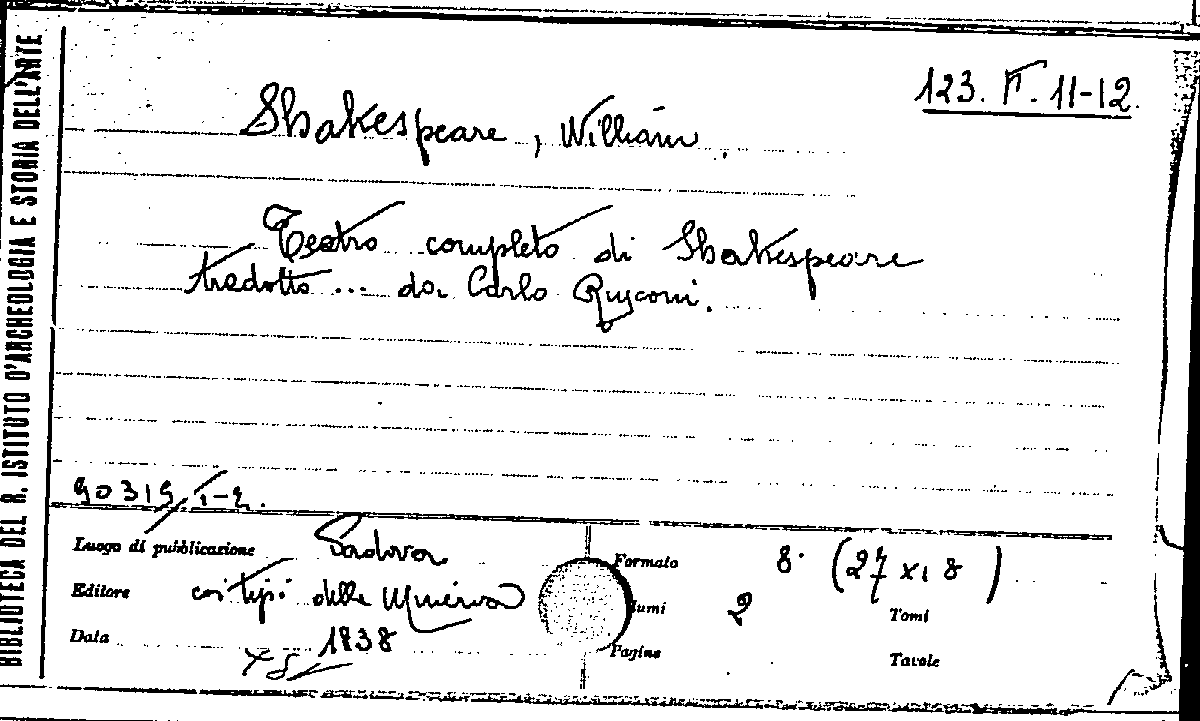 BIBLIOTECA DEL R. ISTITUTO D'ARCHEOLOGIA E STORIA DELL'ARTE
123. F. 11-12.
Shakespeare, William.
Teatro completo di Shakespeare
tradotto ... da Carlo Rusconi.
90319/1-2.
Luogo di pubblicazione Padova
Editore coi tipi della Minerva
Data 1838
Formato 8° (27 x 18)
lumi 2 Tomi
Pagine Tavole